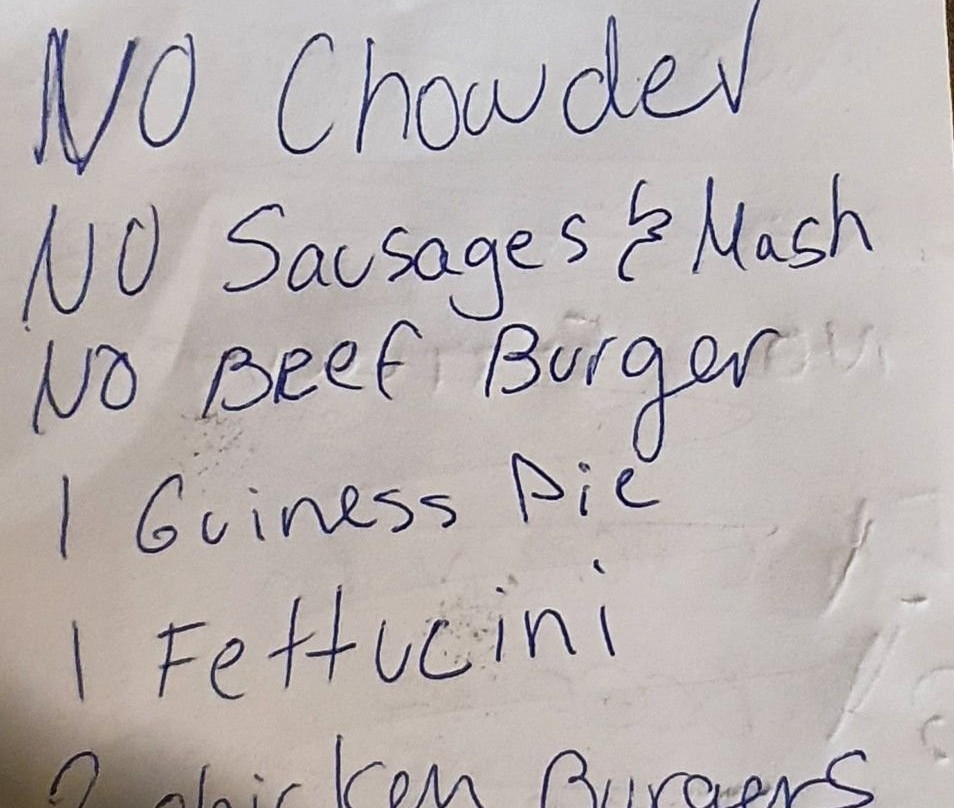 NO Chowder
NO Sausages & Mash
NO Beef Burger
1 Guiness Pie
1 Fettucini
2 chicken Burgers